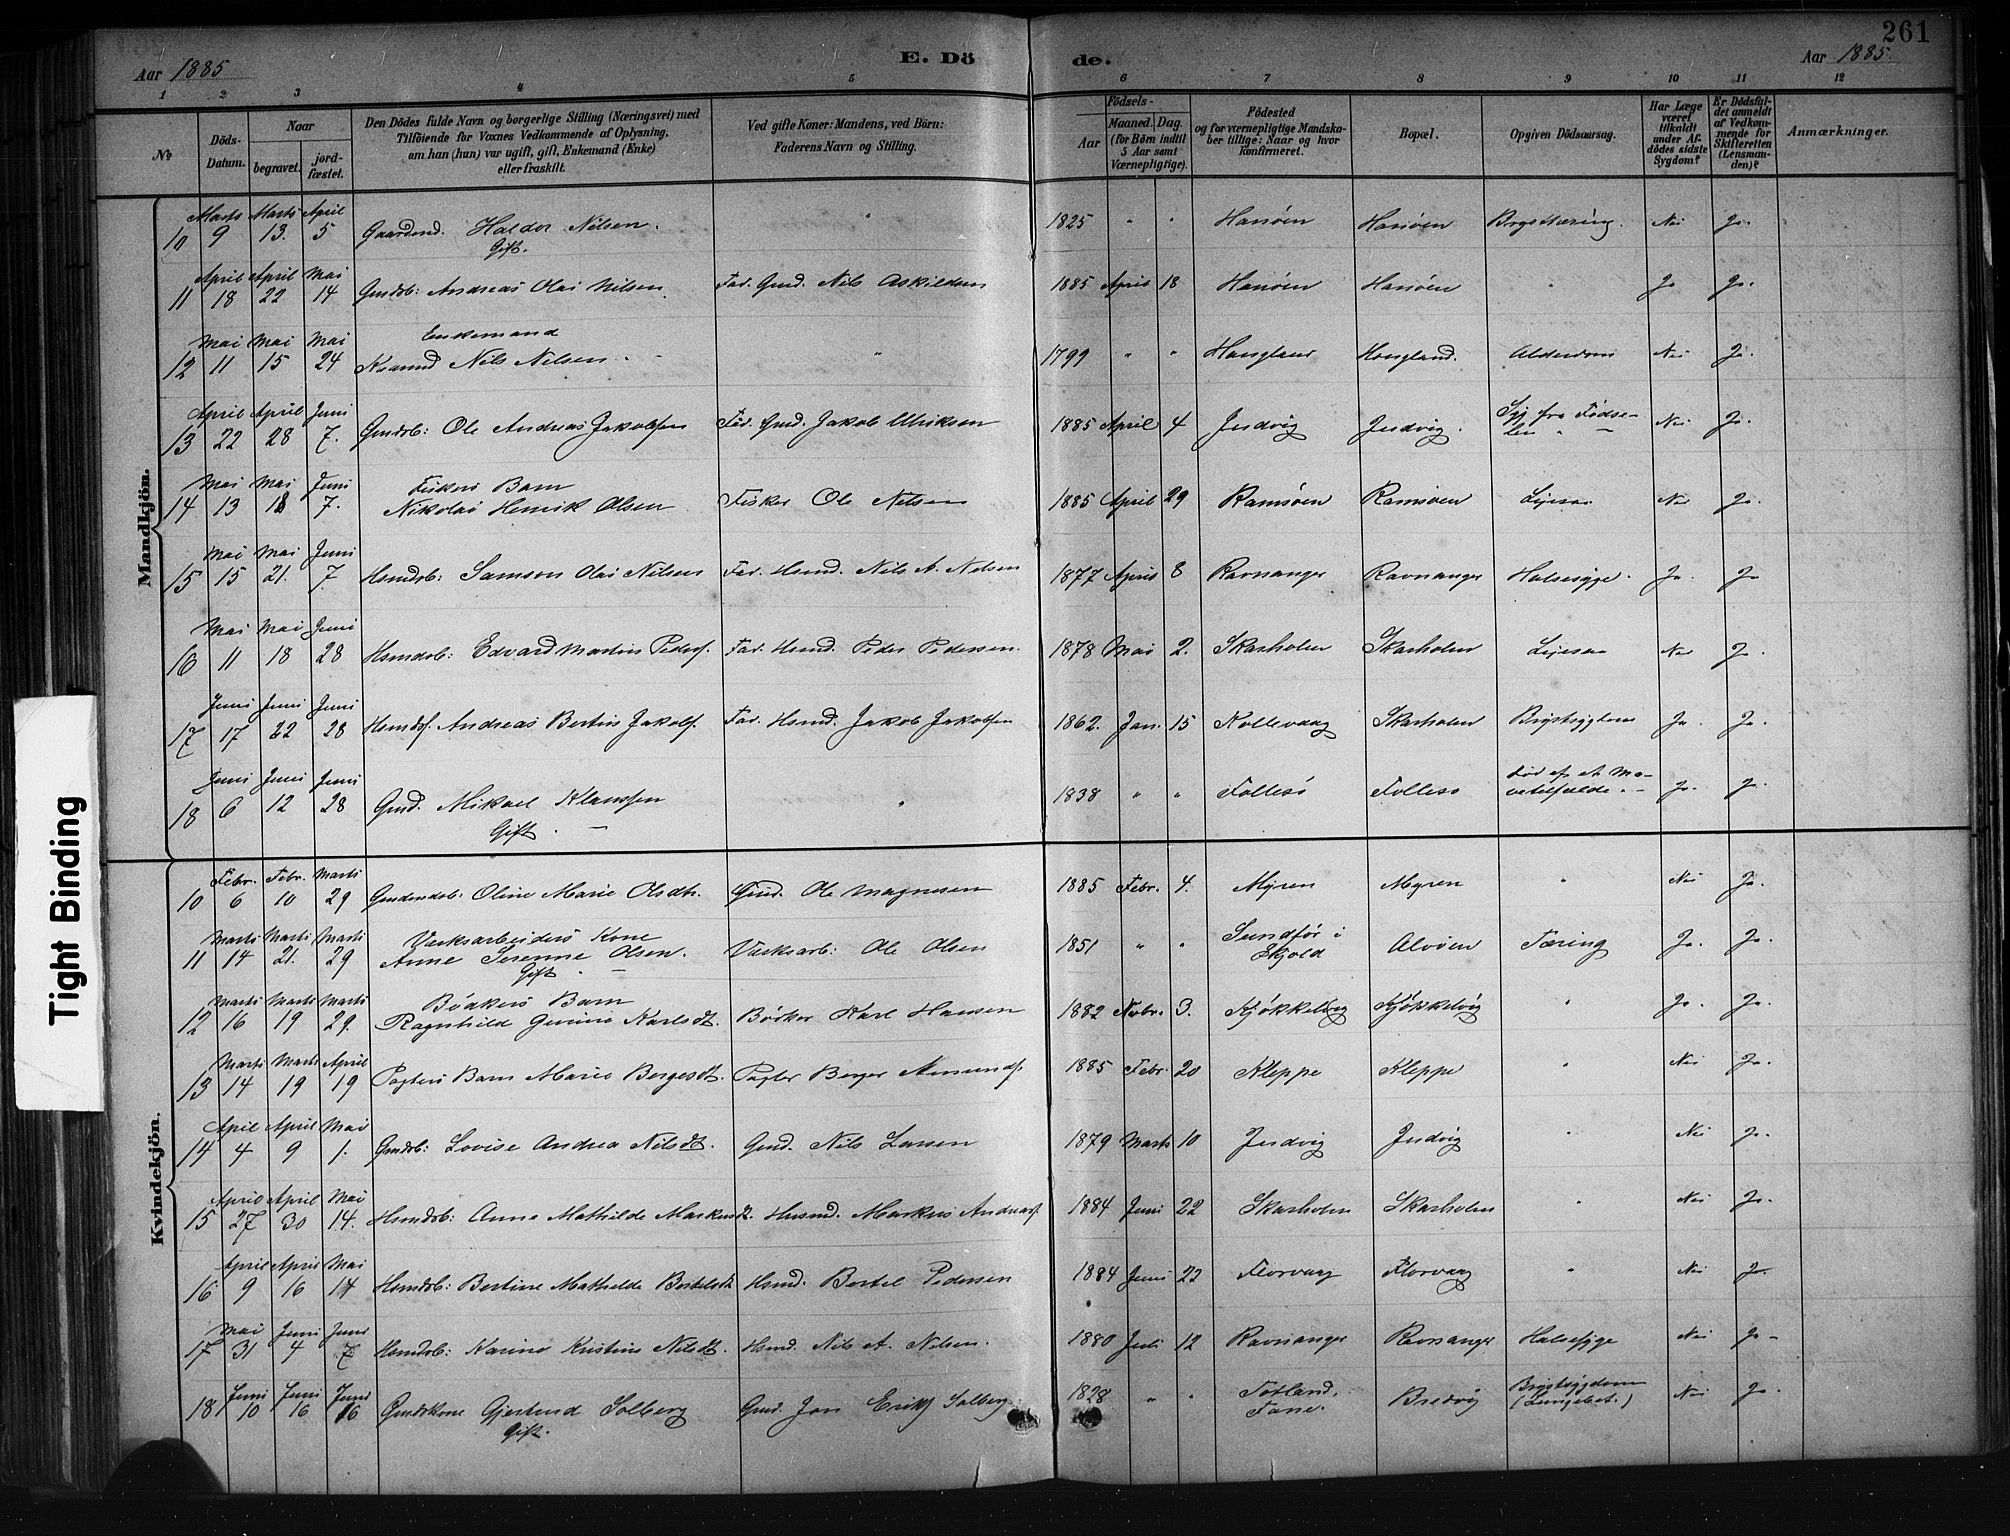 261
Aar 1885
E. Dö
de.
Aar 1885.
1 2 3 4 5 6 7 8 9 10 11 12
No
Döds-
Datum.
Naar
begravet.
jord-
fæstet.
Den Dödes fulde Navn og borgerlige Stilling (Næringsvei) med
Tilföiende for Voxnes Vedkommende af Oplysning,
om han (hun) var ugift, gift, Enkemand (Enke)
eller fraskilt.
Ved gifte Koner: Mandens, ved Börn:
Faderens Navn og Stilling.
Födsels-
Aar
Maaned. Dag.
(for Börn indtil
5 Aar samt
Værnepligtige).
Födested
og for værnepligtige Mandska-
ber tillige: Naar og hvor
konfirmeret.
Bopæl.
Opgiven Dödsaarsag.
Har Læge
været
tilkaldt
under Af-
dödes sidste
Sygdom?
Er Dödsfal-
det anmeldt
af Vedkom-
mende for
Skifteretten
(Lensman-
den)?
Anmærkninger.
Mandkjön.
Marts Marts April
10 9 13. 5 Gaardmd. Haldor Nilsen. " 1825 " " Hanöen Hanöen Brysttæring. Nei Ja.
Gift.
April April Mai
11 18 22 14 Gmdsb: Andreas Olai Nilsen Fad. Gmd. Nils Askildsen 1885 April 18 Hanöen Hanöen " Ja Ja.
Enkemand
Mai Mai Mai
12 11 15 24 Nils Nilsen " 1799 " " Haugland Haugland. Alderdom Nei Ja.
April April Juni
13 22 28 7. Gmdsb: Ole Andreas Jakobsen Fad. Gmd. Jakob Ulriksen 1885 April 4 Indvig Indvig. Syg fra Födse-
len Nei Ja.
Mai Mai Juni
Fiskers Barn
14 13 18 7. Nikolai Henrik Olsen Fisker Ole Nilsen 1885 April 29 Ramsöen Ramsöen Nei Ja.
Mai Mai Juni
15 15 21. 7. Hsmdsb: Samson Olai Nilsen Fad. Hsmd. Nils A. Nilsen 1877 April 8 Ravnanger Ravnanger Halssyge. Ja. Ja
Mai Mai Juni
16 11 18 28 Hsmdsb: Edvard Martin Peders. Fad. Hsmd. Peder Pedersen. 1878 Mai 2. Skarholm Skarholm Nei Ja.
Juni Juni Juni
17 17 22 28 Hsmds. Andreas Bertin Jakobs. Fad. Hsmd. Jakob Jakobsen 1862. Jan. 15 Kollevaag Skarholm Brystsygdom Ja. Ja.
Juni Juni Juni
18 6 12 28 Gmd. Mikael Klaussen " 1838 " " Follesö Follesö Död af et Ma-
vetilfælde. Ja. Ja.
Gift.
Kvindekjön.
Febr. Febr. Marts
10 6 10 29 Oline Marie Olsdt. Gmd. Ole Magnusen 1885 Febr. 4. Myren Myren " Nei Ja.
Marts Marts Marts
Værksarbeiders Kone
11 14 21. 29 Anne Serenne Olsen. Værksarb: Ole Olsen 1851 " " Sundför i
Skjold Alvöen Tæring Ja. Ja.
Gift.
Marts Marts Marts
Bödkers Barn
12 16 19 29. Ragnhild Karlsdt. Bödker Karl Hansen 1882 Novbr. 3. Kjökkelvig Kjökkelvig " Ja. Ja.
Marts Marts April
13 14 19 19 Pagters Barn Marie Bergesdt. Pagter Berger 1885 Febr. 20 Kleppe Kleppe " Nei Ja.
April April Mai
14 4 9 1. Gmdsb: Lovise Andrea Nilsdt. Gmd. Nils Larsen 1879 Marts 10 Indvig Indvig " Nei Ja.
April April Mai
15 27 30 14. Hsmdsb: Anna Mathilde Markusdt. Husmd. Markus Andreas. 1884 Juni 22 Skarholm Skarholm " Nei Ja.
April April Mai
16 9 16 14 Hsmdsb: Bertine Mathilde Bertelsdt Hsmd. Bertel Pedersen 1884 Juni 22 Florvaag Florvaag " Nei Ja.
Mai Juni Juni
17 31 4 7 Hsmdsb: Karine Kristine Nilsdt. Hsmd. Nils A. Nilsen. 1880 Juli 12 Ravnanger Ravnanger Halssyge Nei Ja
Juni Juni Juni
18 10 16 16 Gmdskone Gjertrud Solberg Gmd. Jon Eriks Solberg 1828 " " Totland,
Fane. Bredvig Brystsygdom
(Lungebet.) Nei Ja.
Gift.
Tight Binding